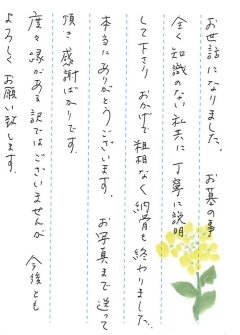 お世話になりました。 お墓の事
全く知識のない私共に丁寧に説明
して下さり おかげで粗相なく納骨も終わりました。
本当にありがとうございます。 お写真まで送って
頂き感謝ばかりです。
度々縁がある訳ではございませんが 今後とも
よろしくお願い致します。